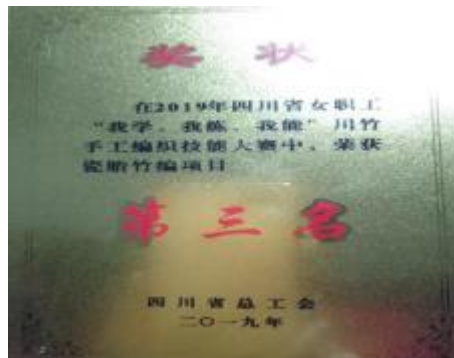 奖 状
在2019年四川省女职工
“我学、我练、我能”川竹
手工编织技能大赛中，荣获
瓷胎竹编项目
第三名
四川省总工会
二〇一九年